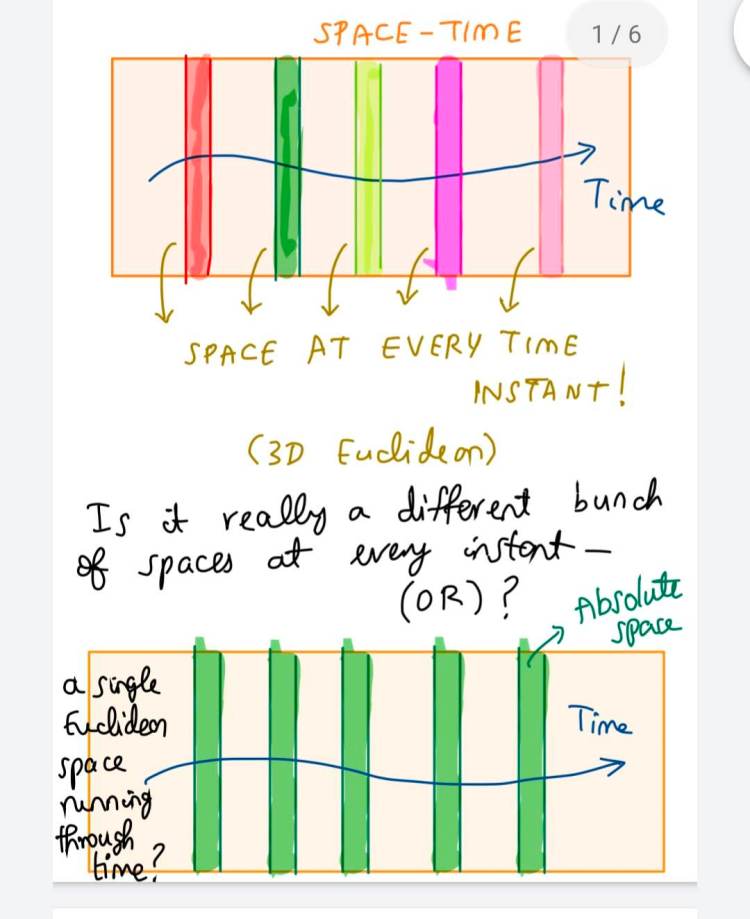 SPACE-TIME
1 / 6
Time
SPACE AT EVERY TIME
INSTANT!
(3D Euclidean)
Is it really a different bunch
of spaces at every instant —
(OR)?
Absolute
space
a single
Euclidean
space
running
through
time?
Time